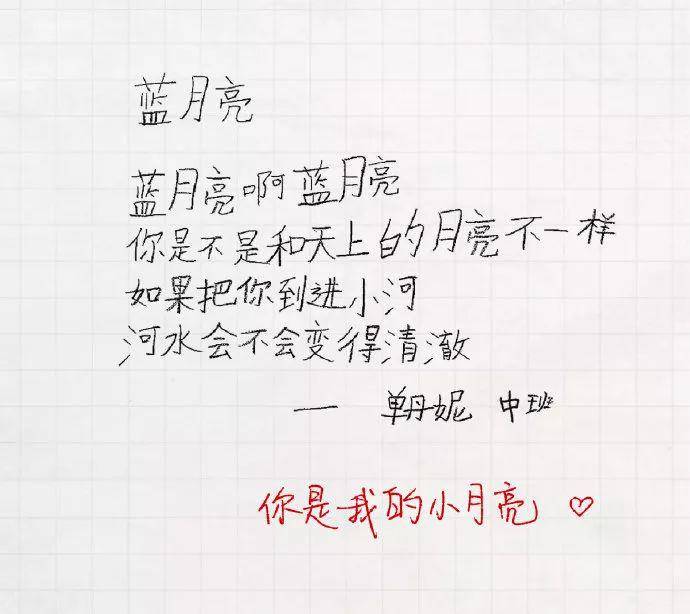 蓝月亮
蓝月亮啊蓝月亮
你是不是和天上的月亮不一样
如果把你到进小河
河水会不会变得清澈
— 单丹妮 中班
你是我的小月亮 ♡